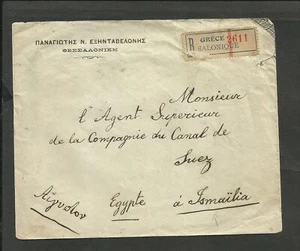 ΠΑΝΑΓΙΩΤΗΣ Ν. ΕΞΗΝΤΑΒΕΛΟΝΗΣ
ΘΕΣΣΑΛΟΝΙΚΗ
R
GRÈCE
SALONIQUE
2611
Monsieur
l'Agent Superieur
de la Compagnie du Canal de
Suez
Αἴγυπτον
Egypte à Ismaïlia